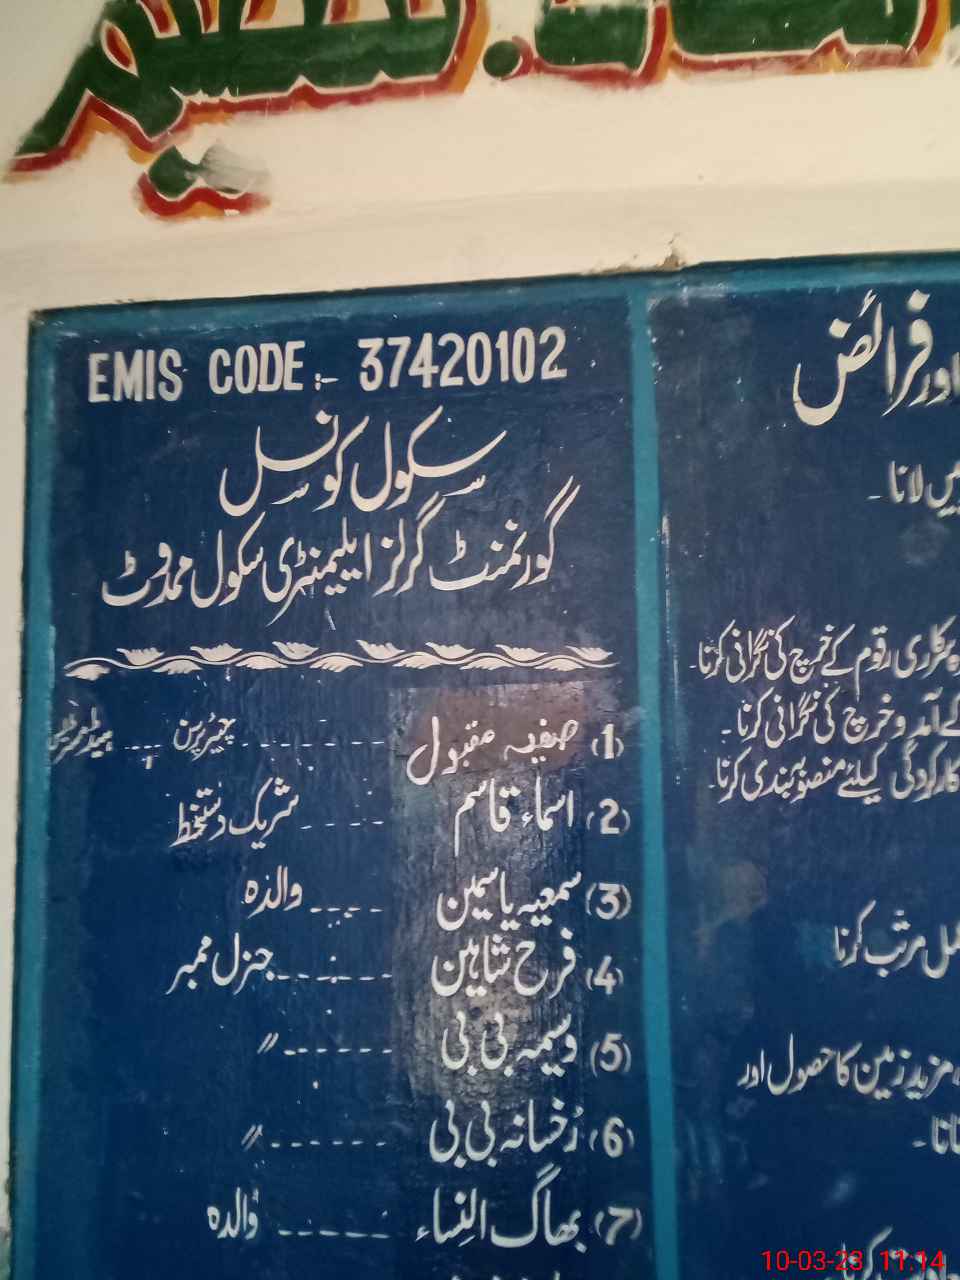 EMIS CODE:- 37420102
سکول کونسل
گورنمنٹ گرلز ایلیمنٹری سکول ممدوٹ
(1) صفیہ مقبول ------ چیئرپرسن --- ہیڈمسٹریس
(2) اسماء قاسم ---- شریک دستخط
(3) سمعیہ یاسمین ---- والدہ
(4) فرح شاہین ------ جنرل ممبر
(5) وسیمہ بی بی ------ //
(6) رُخسانہ بی بی ------ //
(7) بھاگ النساء ----- والدہ
اور فرائض
میں لانا۔
سرکاری رقوم کے خرچ کی نگرانی کرنا۔
کے آمد و خرچ کی نگرانی کرنا۔
کارکردگی کیلئے منصوبہ بندی کرنا۔
مرتب کرنا
مزید زمین کا حصول اور
10-03-23 11:14